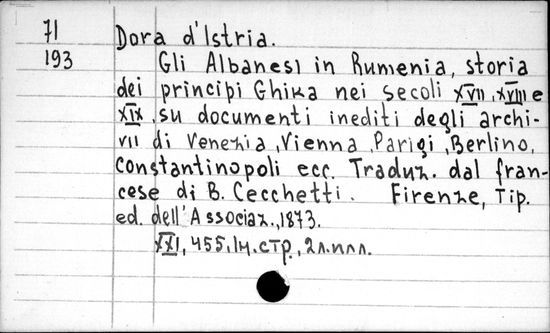 71 Dora d'Istria.
193 Gli Albanesi in Rumenia, storia
dei principi Ghika nei secoli XVII, XVIII e
XIX, su documenti inediti degli archi-
vii di Venezia, Vienna, Parigi, Berlino,
Constantinopoli ecc. Traduz. dal fran-
cese di B. Cecchetti. Firenze, Tip.
ed. dell'Associaz., 1873.
XXI, 455, 1н. стр., 2л. илл.